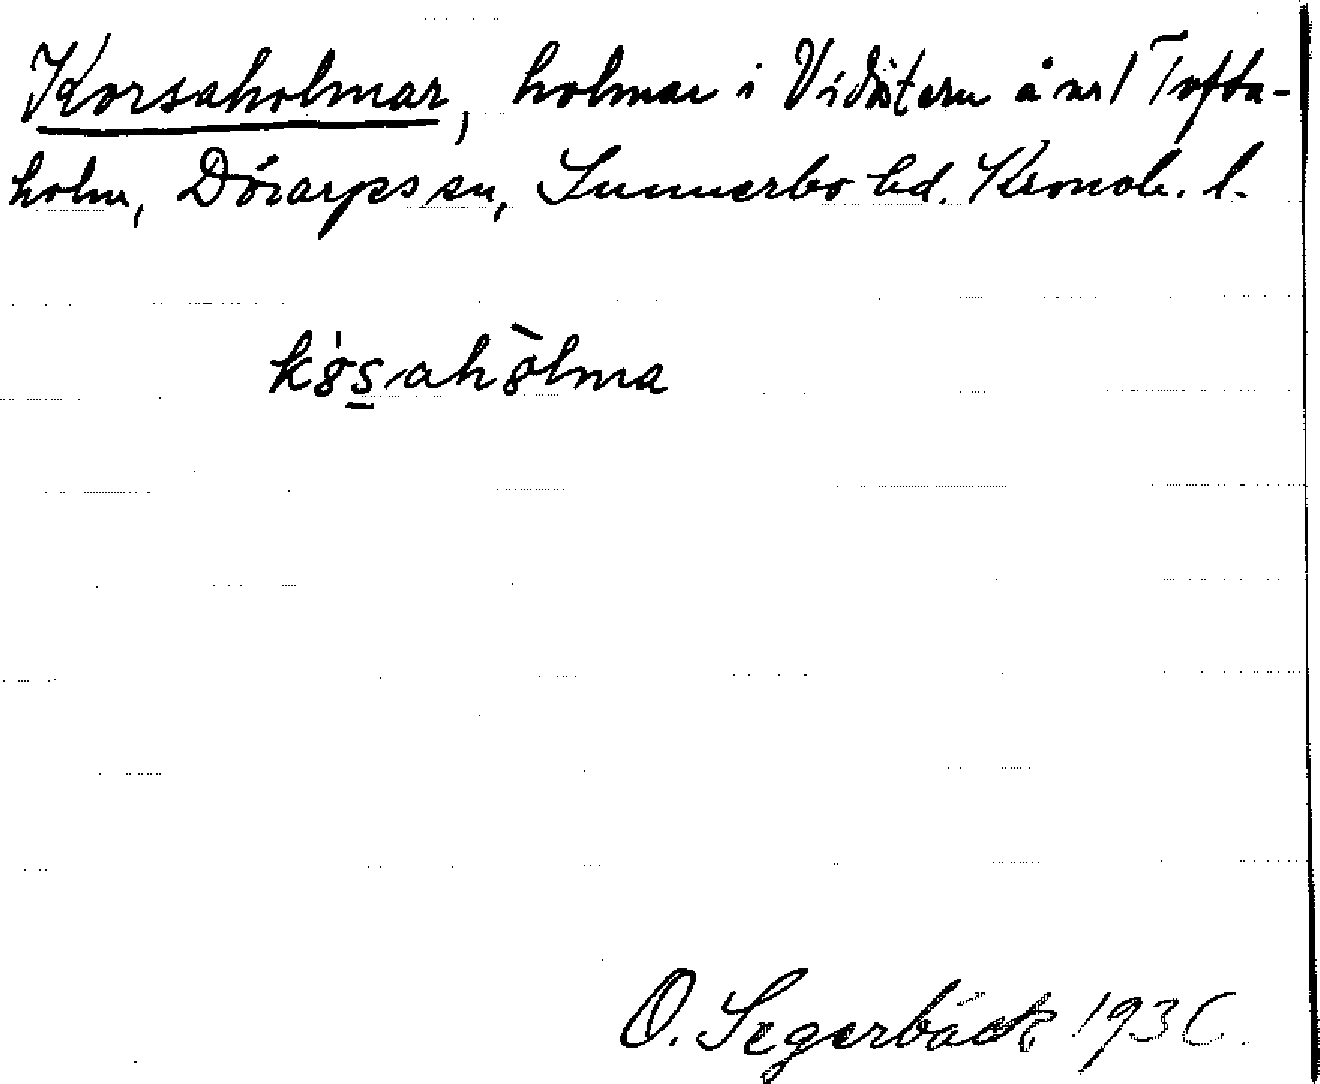 Korsaholmar, holmar i Vidöstern å nr 1 Tofta-
holm, Dörarps sn, Sunnerbo hd. Kronob. l.
kó̤saho̤lma
O. Segerbäck 193